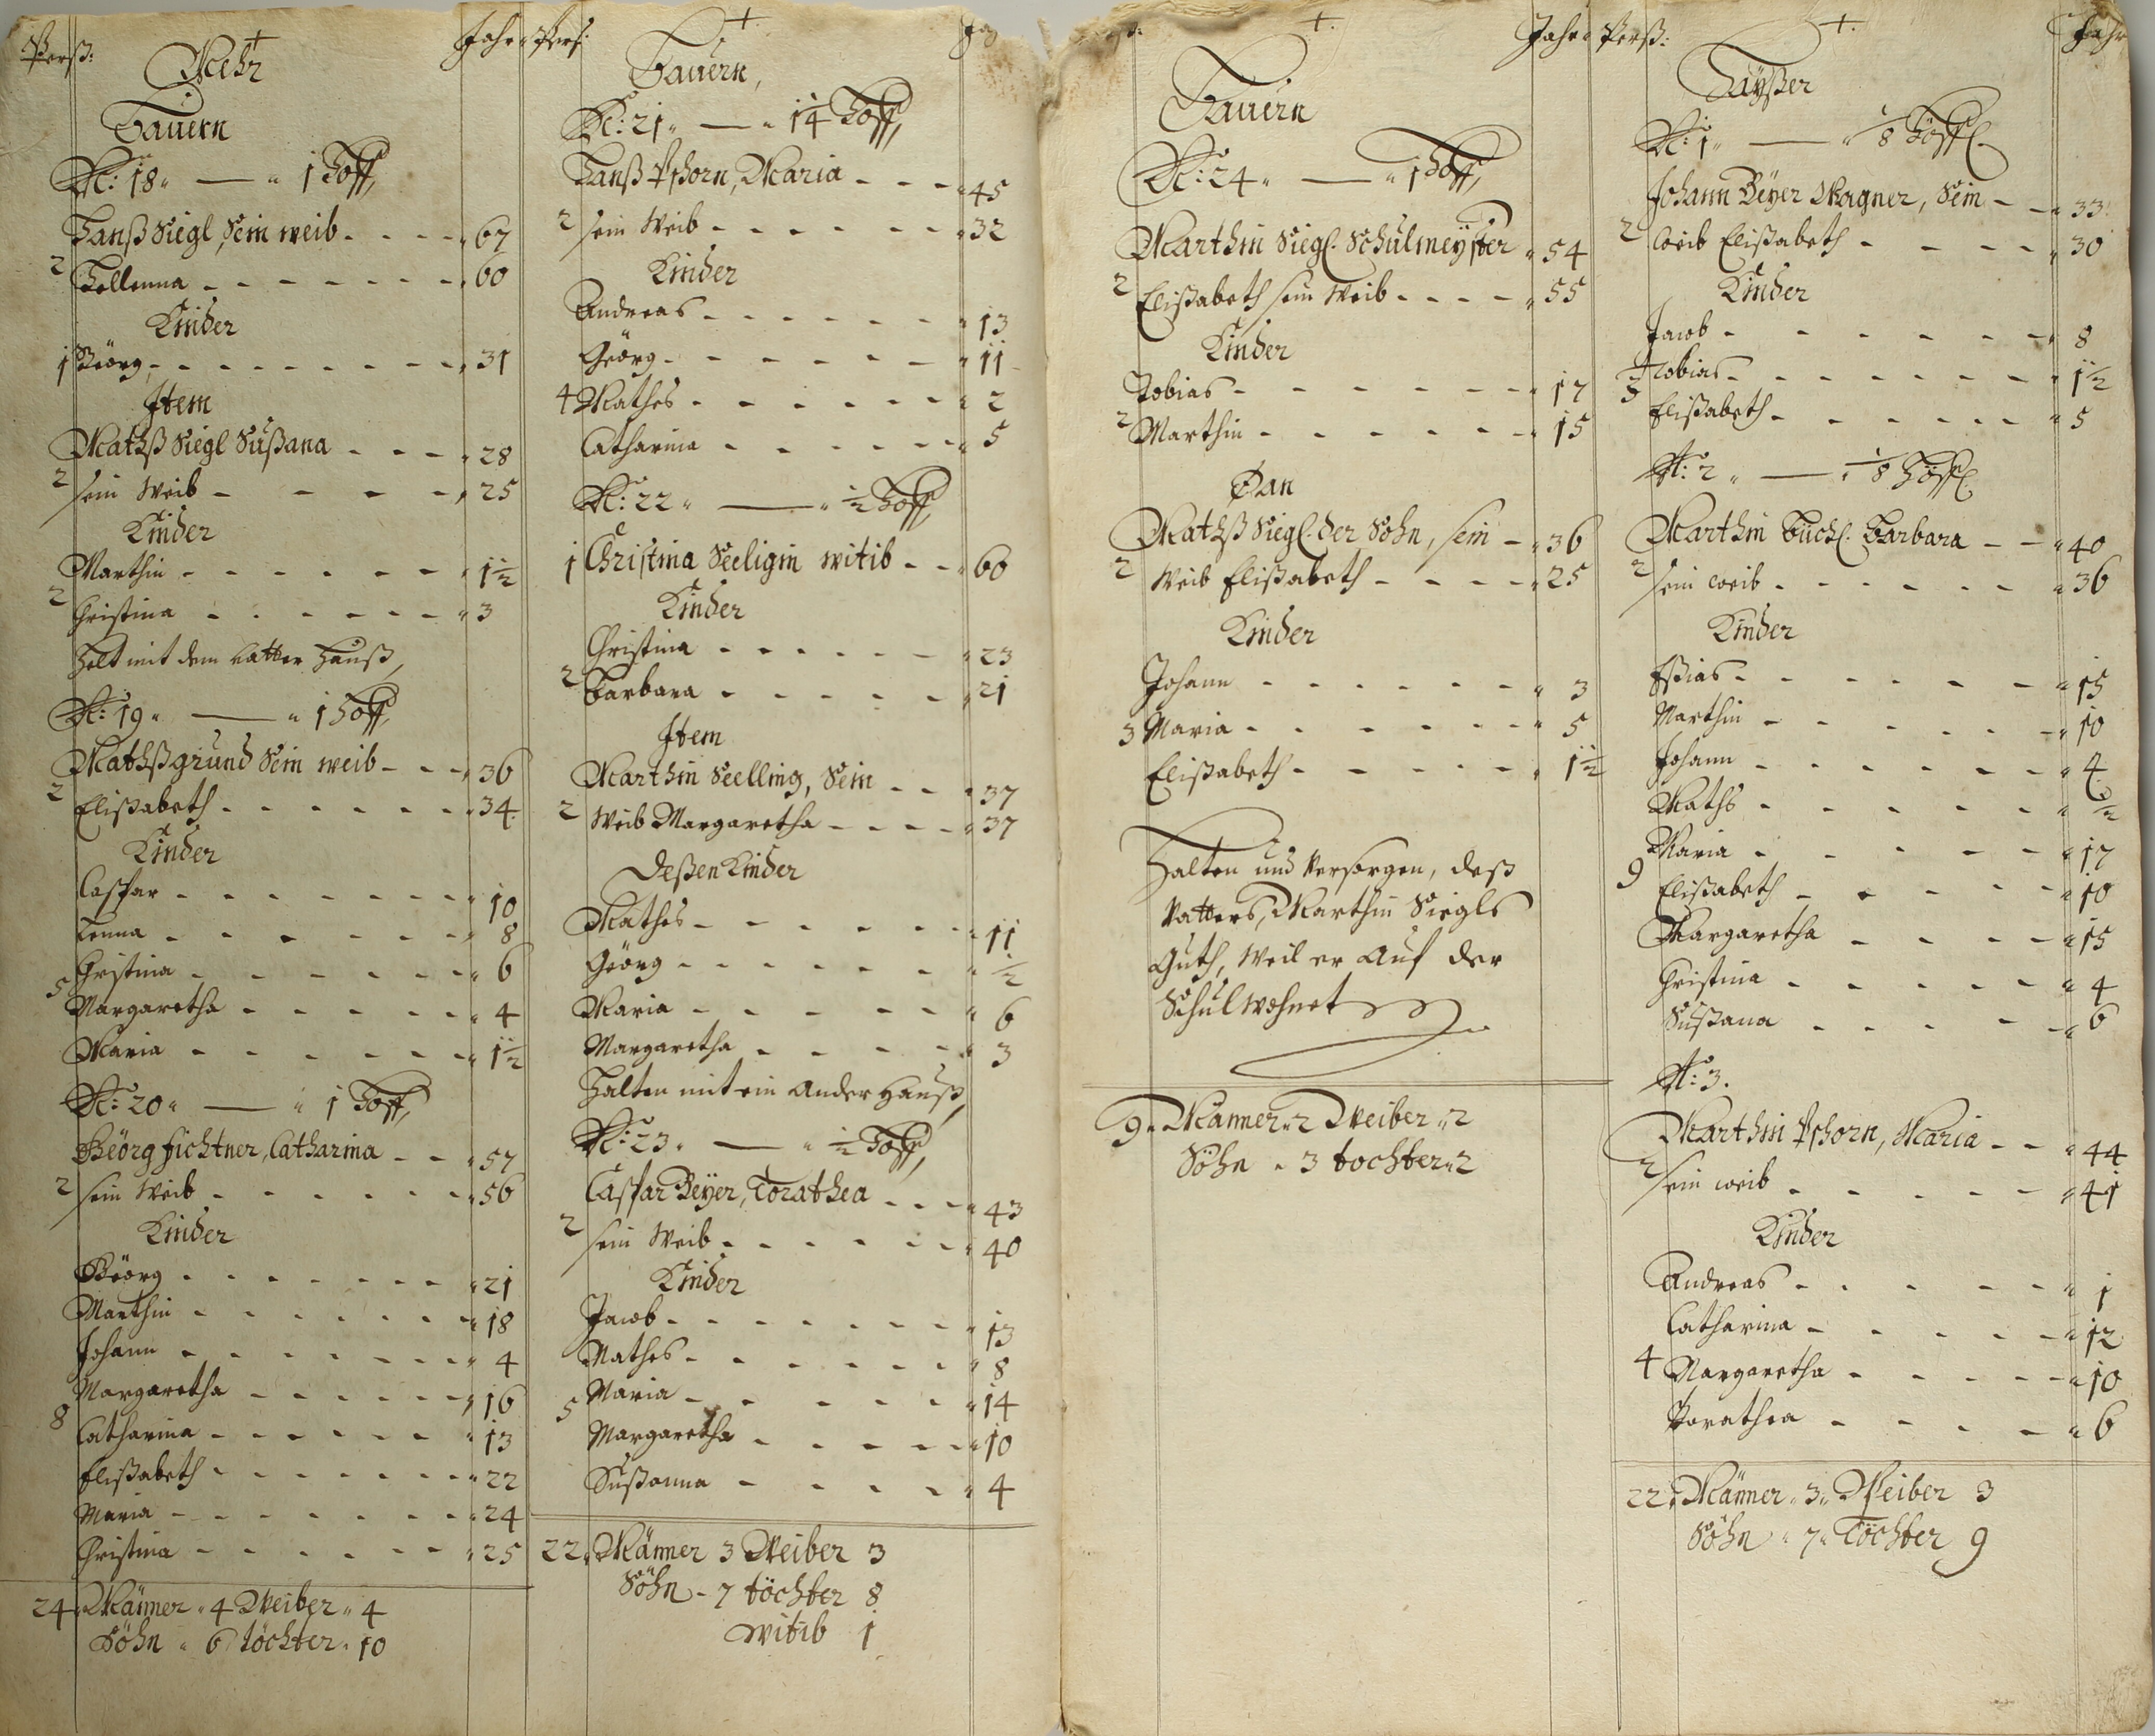 Perß:
Jahr
+
Mehr
Bauern
N: 18 " — " 1 Hoff,
Hanß Siegl, Sein weib - - - " 67
2 Hellenna - - - - - - " 60
Kinder
1 Geörg, - - - - - - - " 31
Item
Mathß Siegl Sußana - - - " 28
2 sein Weib - - - - " 25
Kinder
Marthin - - - - - - " 1½
2 Christina - - - - - - " 3
Helt mit dem Vatter Hauß,
N: 19 " — " 1 Hoff,
Mathß grund Sein weib - - - " 36
2 Elißabeth - - - - - - " 34.
Kinder
Caspar - - - - - - - " 10
Lenna - - - - - - " 8
Christina - - - - - - " 6
5 Margaretha - - - - - " 4
Maria - - - - - - " 1½
N: 20 " — " 1 Hoff,
Geörg fichtner, Catharina - - " 57
2 sein Weib - - - - - - " 56
Kinder
Geörg - - - - - - - " 21
Marthin - - - - - - " 18
Johann - - - - - - - " 4
Margaretha - - - - - - " 16
8 Catharina - - - - - - " 13
Elißabeth - - - - - - - " 22
Maria - - - - - - - " 24
Christina - - - - - - " 25
24 " Männer " 4 Weiber " 4
Söhn " 6 töchter " 10
Perß:
+
Bauern,
N: 21 " — " 1¼ Hoff,
Hanß Pshorn, Maria - - - " 45
2 sein Weib - - - - - - " 32
Kinder
Andreas - - - - - - " 13
Geörg - - - - - - " 11
4 Mathes - - - - - - " 2
Catharina - - - - - - " 5
N: 22 " — " ½ Hoff,
1 Christina Seeligin witib - - " 60
Kinder
Christina - - - - - - " 23
2 Barbara - - - - - " 21
Item
Marthin Seelling, Sein - - - " 37
2 Weib Margaretha - - - - " 37
Deßen Kinder
Mathes - - - - - - " 11
Geörg - - - - - - " ½
Maria - - - - - - " 6
Margaretha - - - - - " 3
Halten mit ein Ander Hauß,
N: 23 " — " ½ Hoff,
Caspar Beÿer, Torathea - - - " 43
2 sein Weib - - - - - - " 40
Kinder
Jacob - - - - - - - " 13
Mathes - - - - - - " 8
Maria - - - - - - " 14
5 Margaretha - - - - - " 10
Sußanna - - - - - " 4
22 " Männer 3 Weiber 3
Söhn - 7 töchter 8
witib 1
+
Jahr
Bauern
N: 24 " — " 1 Hoff,
Marthin Siegl. Schulmeÿster " 54
2 Elißabeth sein Weib - - - - " 55
Kinder
Tobias - - - - - - " 17
2 Marthin - - - - - - " 15
Dan
Mathß Siegl. der Sohn, sein - " 36
2 Weib Elißabeth - - - - " 25
Kinder
Johann - - - - - - " 3
3 Maria - - - - - - " 5
Elißabeth - - - - - " 1½
Halten und Versorgen, deß
Vatters, Marthin Siegls
Guth, Weil er Auf der
Schul wohnet
9 " Männer " 2 Weiber " 2
Söhn " 3 tochter " 2
Perß:
+
Jahr
Häÿßer
N: 1 " — " ⅛ Höffl.
Johann Beÿer Wagner, Sein - - " 33
2 Weib Elißabeth - - - - " 30
Kinder
Jacob - - - - - - " 8
3 Tobias - - - - - - - " 1½
Elißabeth - - - - - - " 5
N: 2 " — " ⅛ Höffl.
Marthin Büchl. Barbara - - " 40
2 sein weib - - - - - - " 36
Kinder
Eßias - - - - - - " 15
Marthin - - - - - - " 10
Johann - - - - - - " 4
Maths - - - - - - " ½
Maria - - - - - " 17
9 Elißabeth - - - - - " 10
Margaretha - - - - " 15
Christina - - - - - " 4
Sußana - - - - - " 6
N: 3.
Marthin Pshorn, Maria - - " 44
2 sein weib - - - - - " 41
Kinder
Andreas - - - - - - " 1
Catharina - - - - - " 12
4 Margaretha - - - - - " 10
Torathea - - - - " 6
22 " Männer " 3 " Weiber 3
Söhn " 7 " Töchter 9